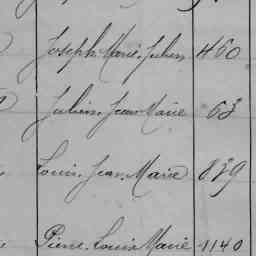 Joseph Marie Julien 460
Julien Jean Marie 63
Louis Jean Marie 839
Pierre Louis Marie 1140